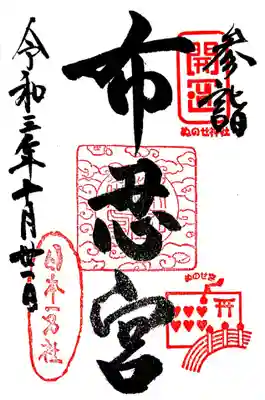 参詣
開運
ぬのせ神社
布忍宮
ぬのせ宮
令和三年十月廿一日
日本一名社